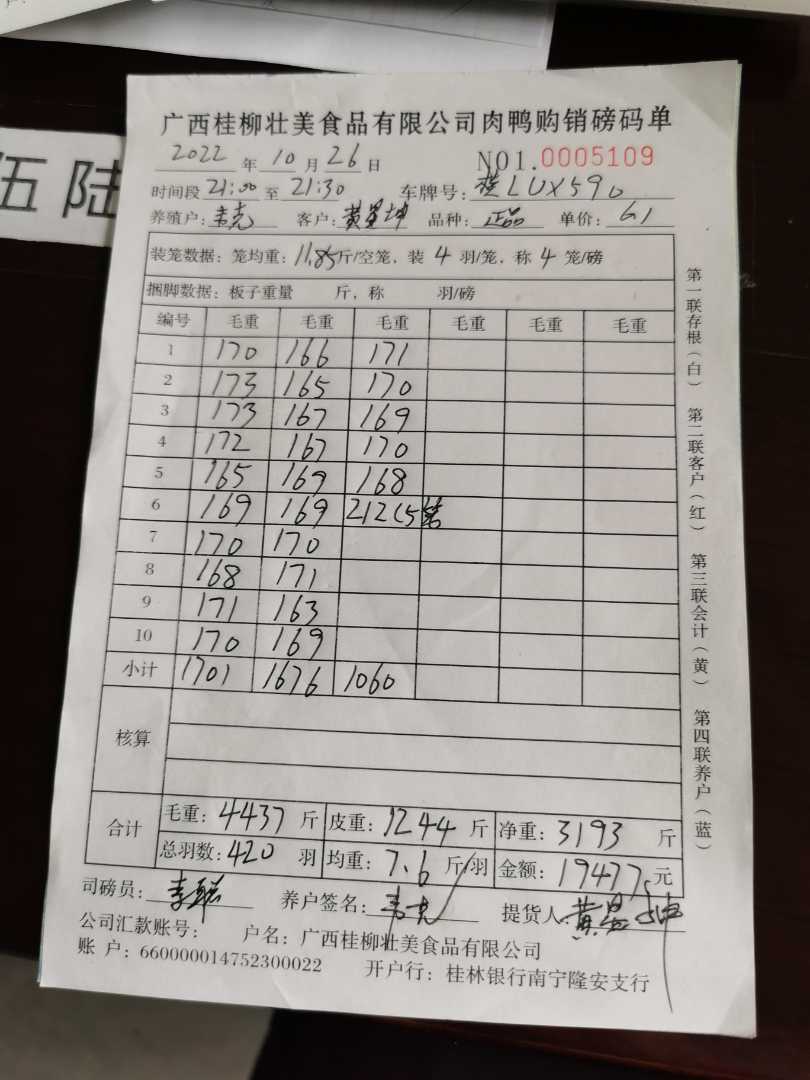 伍陆
广西桂柳壮美食品有限公司肉鸭购销磅码单
2022 年 10 月 26 日 NO1.0005109
时间段 21:00 至 21:30 车牌号: 桂LUX590
养殖户: 韦克 客户: 黄昱坤 品种: 正品 单价: 6.1
装笼数据: 笼均重: 11.85斤/空笼, 装 4 羽/笼, 称 4 笼/磅
捆脚数据: 板子重量 斤, 称 羽/磅
编号 毛重 毛重 毛重 毛重 毛重 毛重
1 170 166 171
2 173 165 170
3 173 167 169
4 172 167 170
5 165 169 168
6 169 169 212(5笼
7 170 170
8 168 171
9 171 163
10 170 169
小计 1701 1676 1060
核算
合计 毛重: 4437 斤 皮重: 1244 斤 净重: 3193 斤
总羽数: 420 羽 均重: 7.6 斤/羽 金额: 19477 元
司磅员: 养户签名: 韦克 提货人: 黄昱坤
公司汇款账号: 户名: 广西桂柳壮美食品有限公司
账 户: 660000014752300022 开户行: 桂林银行南宁隆安支行
第一联存根(白) 第二联客户(红) 第三联会计(黄) 第四联养户(蓝)